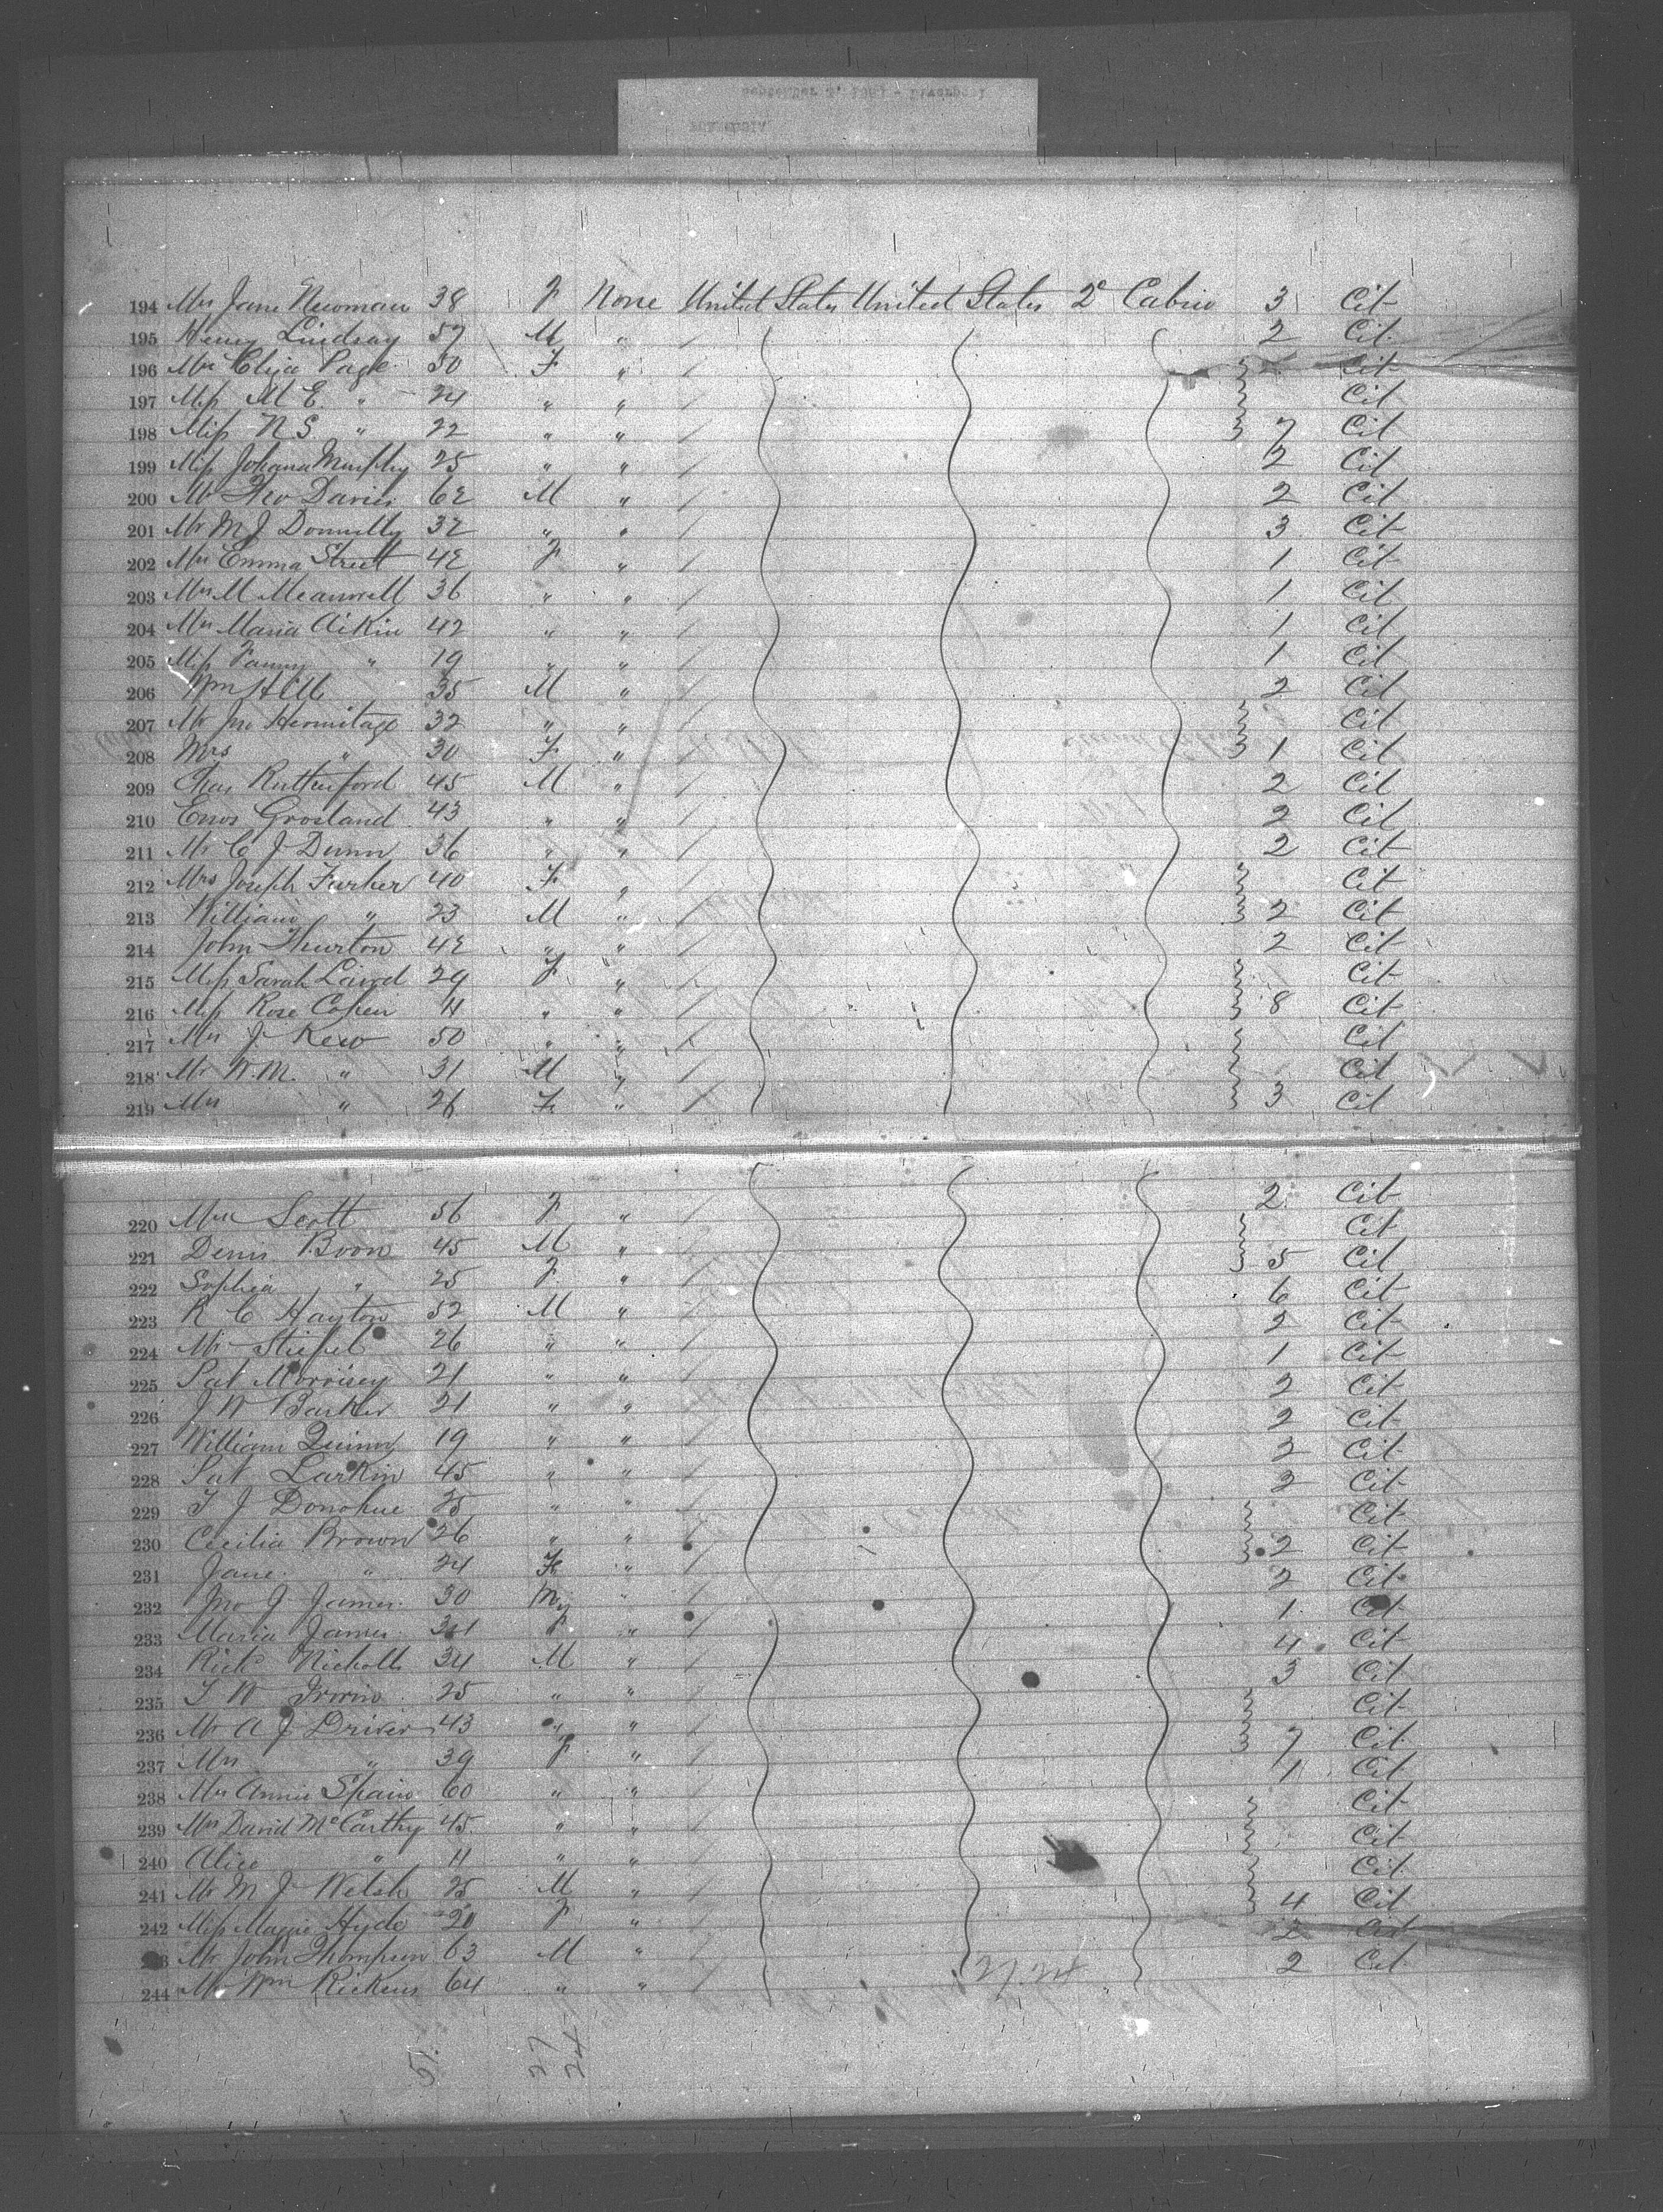 194 Mrs Jane Newman 38 F None United States United States 2º Cabin 3 Cit
195 Henry Lindsay 57 M " / 2 Cit
196 Mrs Eliza Page 50 F " / Cit
197 Miss M E. " 24 " " / Cit
198 Miss N S. " 22 " " / 7 Cit
199 Miss Johana Murphy 25 " " / 2 Cit
200 Mr Geo Davies 62 M " / 2 Cit
201 Mr M J Donnelly 32 " " / 3 Cit
202 Mrs Emma Street 42 F " / 1 Cit
203 Mrs M Meanwell 36 " " / 1 Cit
204 Mrs Maria Aikin 42 " " / 1 Cit
205 Miss Fanny " 19 " " / 1 Cit
206 Wm Hill 35 M " / 2 Cit
207 Mr Jno Hermitage 32 " " / Cit
208 Mrs " 30 F " / 1 Cit
209 Chas Rutherford 45 M " / 2 Cit
210 Enos Crosland 43 " " / 2 Cit
211 Mr C J Dunn 36 " " / 2 Cit
212 Mrs Joseph Furber 40 F " / Cit
213 William " 23 M " / 2 Cit
214 John Thurton 42 " " / 2 Cit
215 Miss Sarah Laird 29 F " / Cit
216 Miss Rose Cohen 11 " " / 8 Cit
217 Mrs J Kew 50 " " / Cit
218 Mr W. M. " 31 M " / Cit
219 Mrs " 26 F " / 3 Cit
220 Mrs Scott 56 F " / 2 Cit
221 Denis Boon 45 M " / Cit
222 Sophia " 25 F " / 5 Cit
223 R C Hayton 52 M " / 6 Cit
224 Mr Stiefel 26 " " / 2 Cit
225 Pat Morrisey 21 " " / 1 Cit
226 J W Barker 21 " " / 2 Cit
227 William Quinn 19 " " / 2 Cit
228 Pat Larkin 45 " " / 2 Cit
229 T J Donohue 25 " " / 2 Cit
230 Cecilia Brown 26 " " / Cit
231 Jane " 24 F " / 2 Cit
232 Jno J James 30 M " / 2 Cit
233 Maria James F " / 1 Cit
234 Richd Nicholls 34 M " / 4 Cit
235 T W Irwin 25 " " / 3 Cit
236 Mr A J Driver 43 " " / Cit
237 Mrs " 39 F " / 7 Cit
238 Mrs Annie Spain 60 " " / 1 Cit
239 Mrs David McCarthy 45 " " / Cit
240 Alice " 11 " " / Cit
241 Mr M J Welsh 25 M " / Cit
242 Miss Maggie Hyde 20 F " / 4 Cit
243 Mr John Thompson 63 M " / 2 Cit
244 Mr Wm Rickens 64 " " / 2 Cit
27.24
51.
27
24